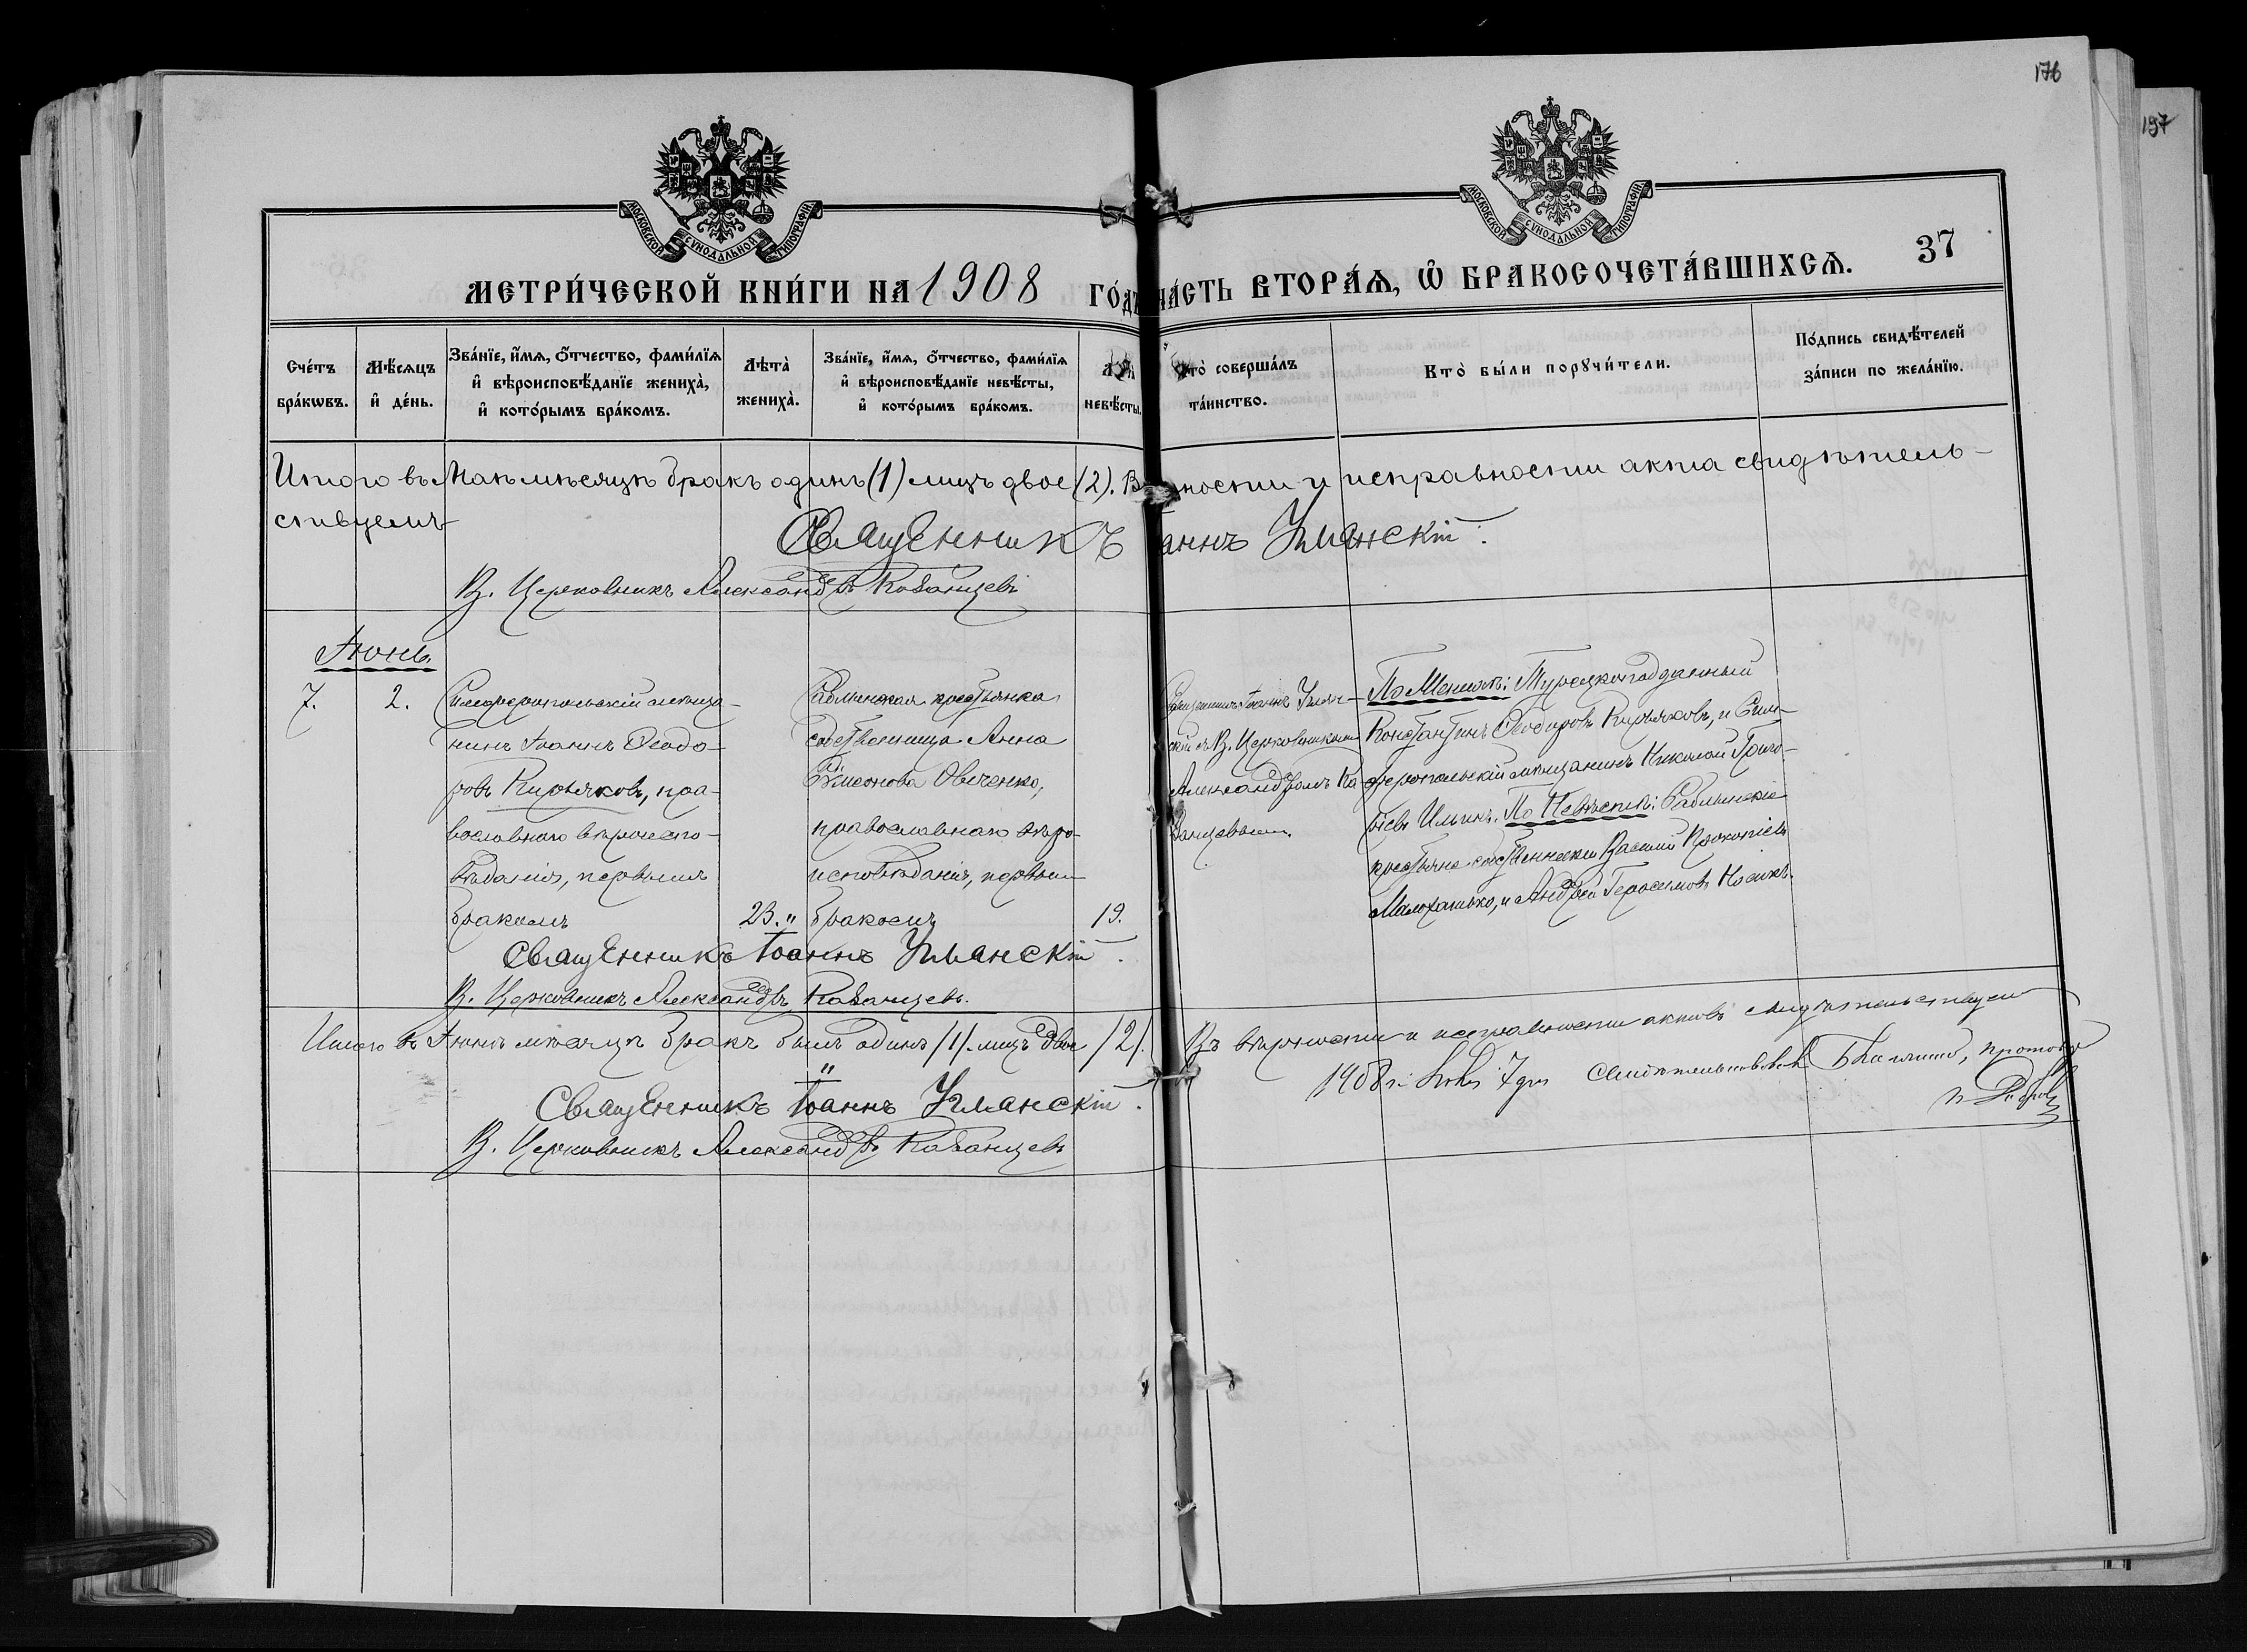 176
197
МОСКОВСКОЙ СѴНОДАЛЬНОЙ ТИПОГРАФІИ
МОСКОВСКОЙ СѴНОДАЛЬНОЙ ТИПОГРАФІИ
МЕТРИ́ЧЕСКОЙ КНИ́ГИ НА 1908 ГО́ДЪ
ЧА́СТЬ ВТОРА́Ѧ, Ѽ БРАКОСОЧЕТА́ВШИХСѦ.
37
Сче́тъ бра́кωвъ.
Мѣ́сѧцъ и҆ де́нь.
Зва́нїе, и҆́мѧ, о҆́тчество, фами́лїѧ
и҆ вѣроисповѣ́данїе жениха̀,
и҆ кото́рымъ бра́комъ.
Лѣта̀ жениха̀.
Зва́нїе, и҆́мѧ, о҆́тчество, фами́лїѧ
и҆ вѣроисповѣ́данїе невѣ́сты,
и҆ кото́рымъ бра́комъ.
невѣ́сты.
Кто̀ соверша́лъ та́инство.
Кто̀ бы́ли порꙋчи́тели.
По́дпись свидѣ́телей
за́писи по жела́нїю.
Итого въ Маѣ мѣсяцѣ бракъ одинъ (1) лицъ двое (2). В ности и исправности акта свидѣтель-
ствуемъ
Священникъ аннъ Уманскій.
В. Церковникъ Александръ Казанцевъ
Іюнь.
7.
2.
Симферопольскій мѣща-
нинъ Іоаннъ Ѳеодо-
ровъ Кирьяковъ, пра-
вославнаго вѣроиспо-
вѣданія, первымъ
бракомъ
23.
Саблинская крестьянка
собственница Анна
Симеонова Овченко,
православнаго вѣро-
исповѣданія, первым
бракомъ
19.
Священникъ Іоаннъ Уман-
скій съ В. Церковникомъ
Александромъ Ка-
занцевымъ.
По Женихѣ: Турецкоподданный
Константинъ Ѳеодоровъ Кирьяковъ, и Сим-
феропольскій мѣщанинъ Николай Григо-
рьевъ Ильинъ. По Невѣстѣ: Саблинскіе
крестьяне-собственники Василій Прокопіевъ
Малохатько, и Андрей Герасимовъ Носикъ.
Священникъ Іоаннъ Уманскій.
В. Церковникъ Александръ Казанцевъ.
Итого въ Іюнѣ мѣсяцѣ бракъ былъ одинъ /1/. лицъ двое /2/. Въ вѣрности и исправности актовъ свидѣтельствуем
Священникъ Іоаннъ Уманскій.
В. Церковникъ Александръ Казанцевъ
1908 г. 7 дня